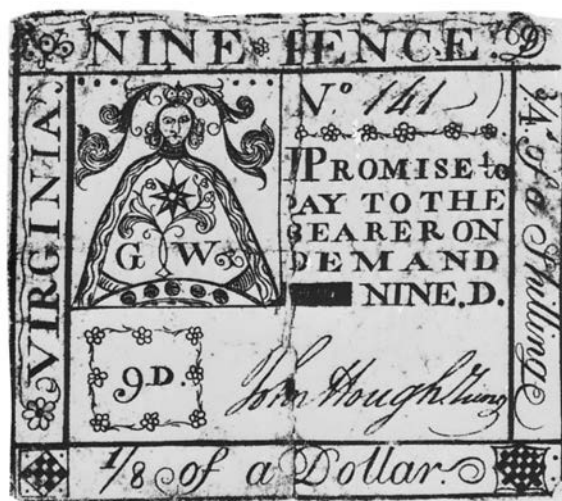 NINE PENCE. 9D
VIRGINIA,
G W
No 141
I PROMISE to
PAY TO THE
BEARER ON
DEMAND
NINE.D.
9D.
John Hough Junr
3/4 of a Shilling
1/8 of a Dollar.